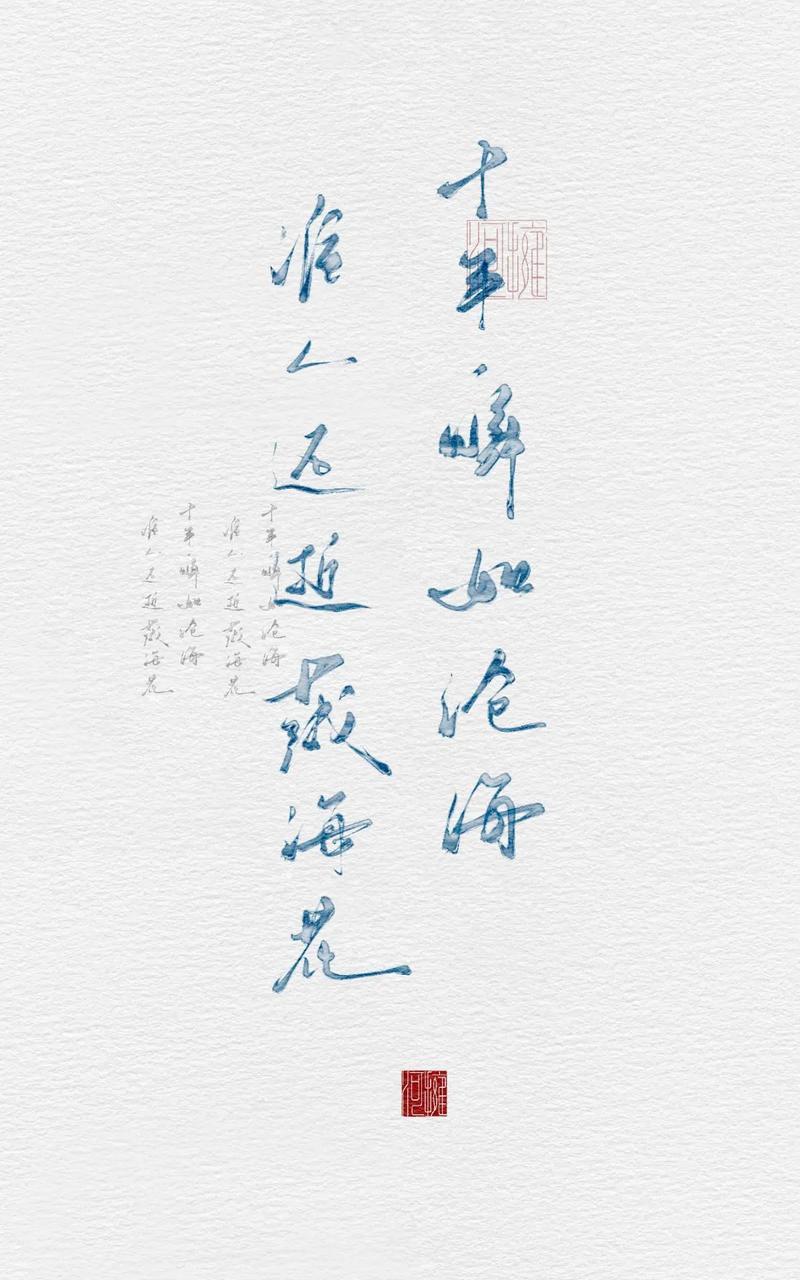 十年一瞬如沧海
谁人还逝藏海花
十年一瞬如沧海
谁人还逝藏海花
十年一瞬如沧海
谁人还逝藏海花